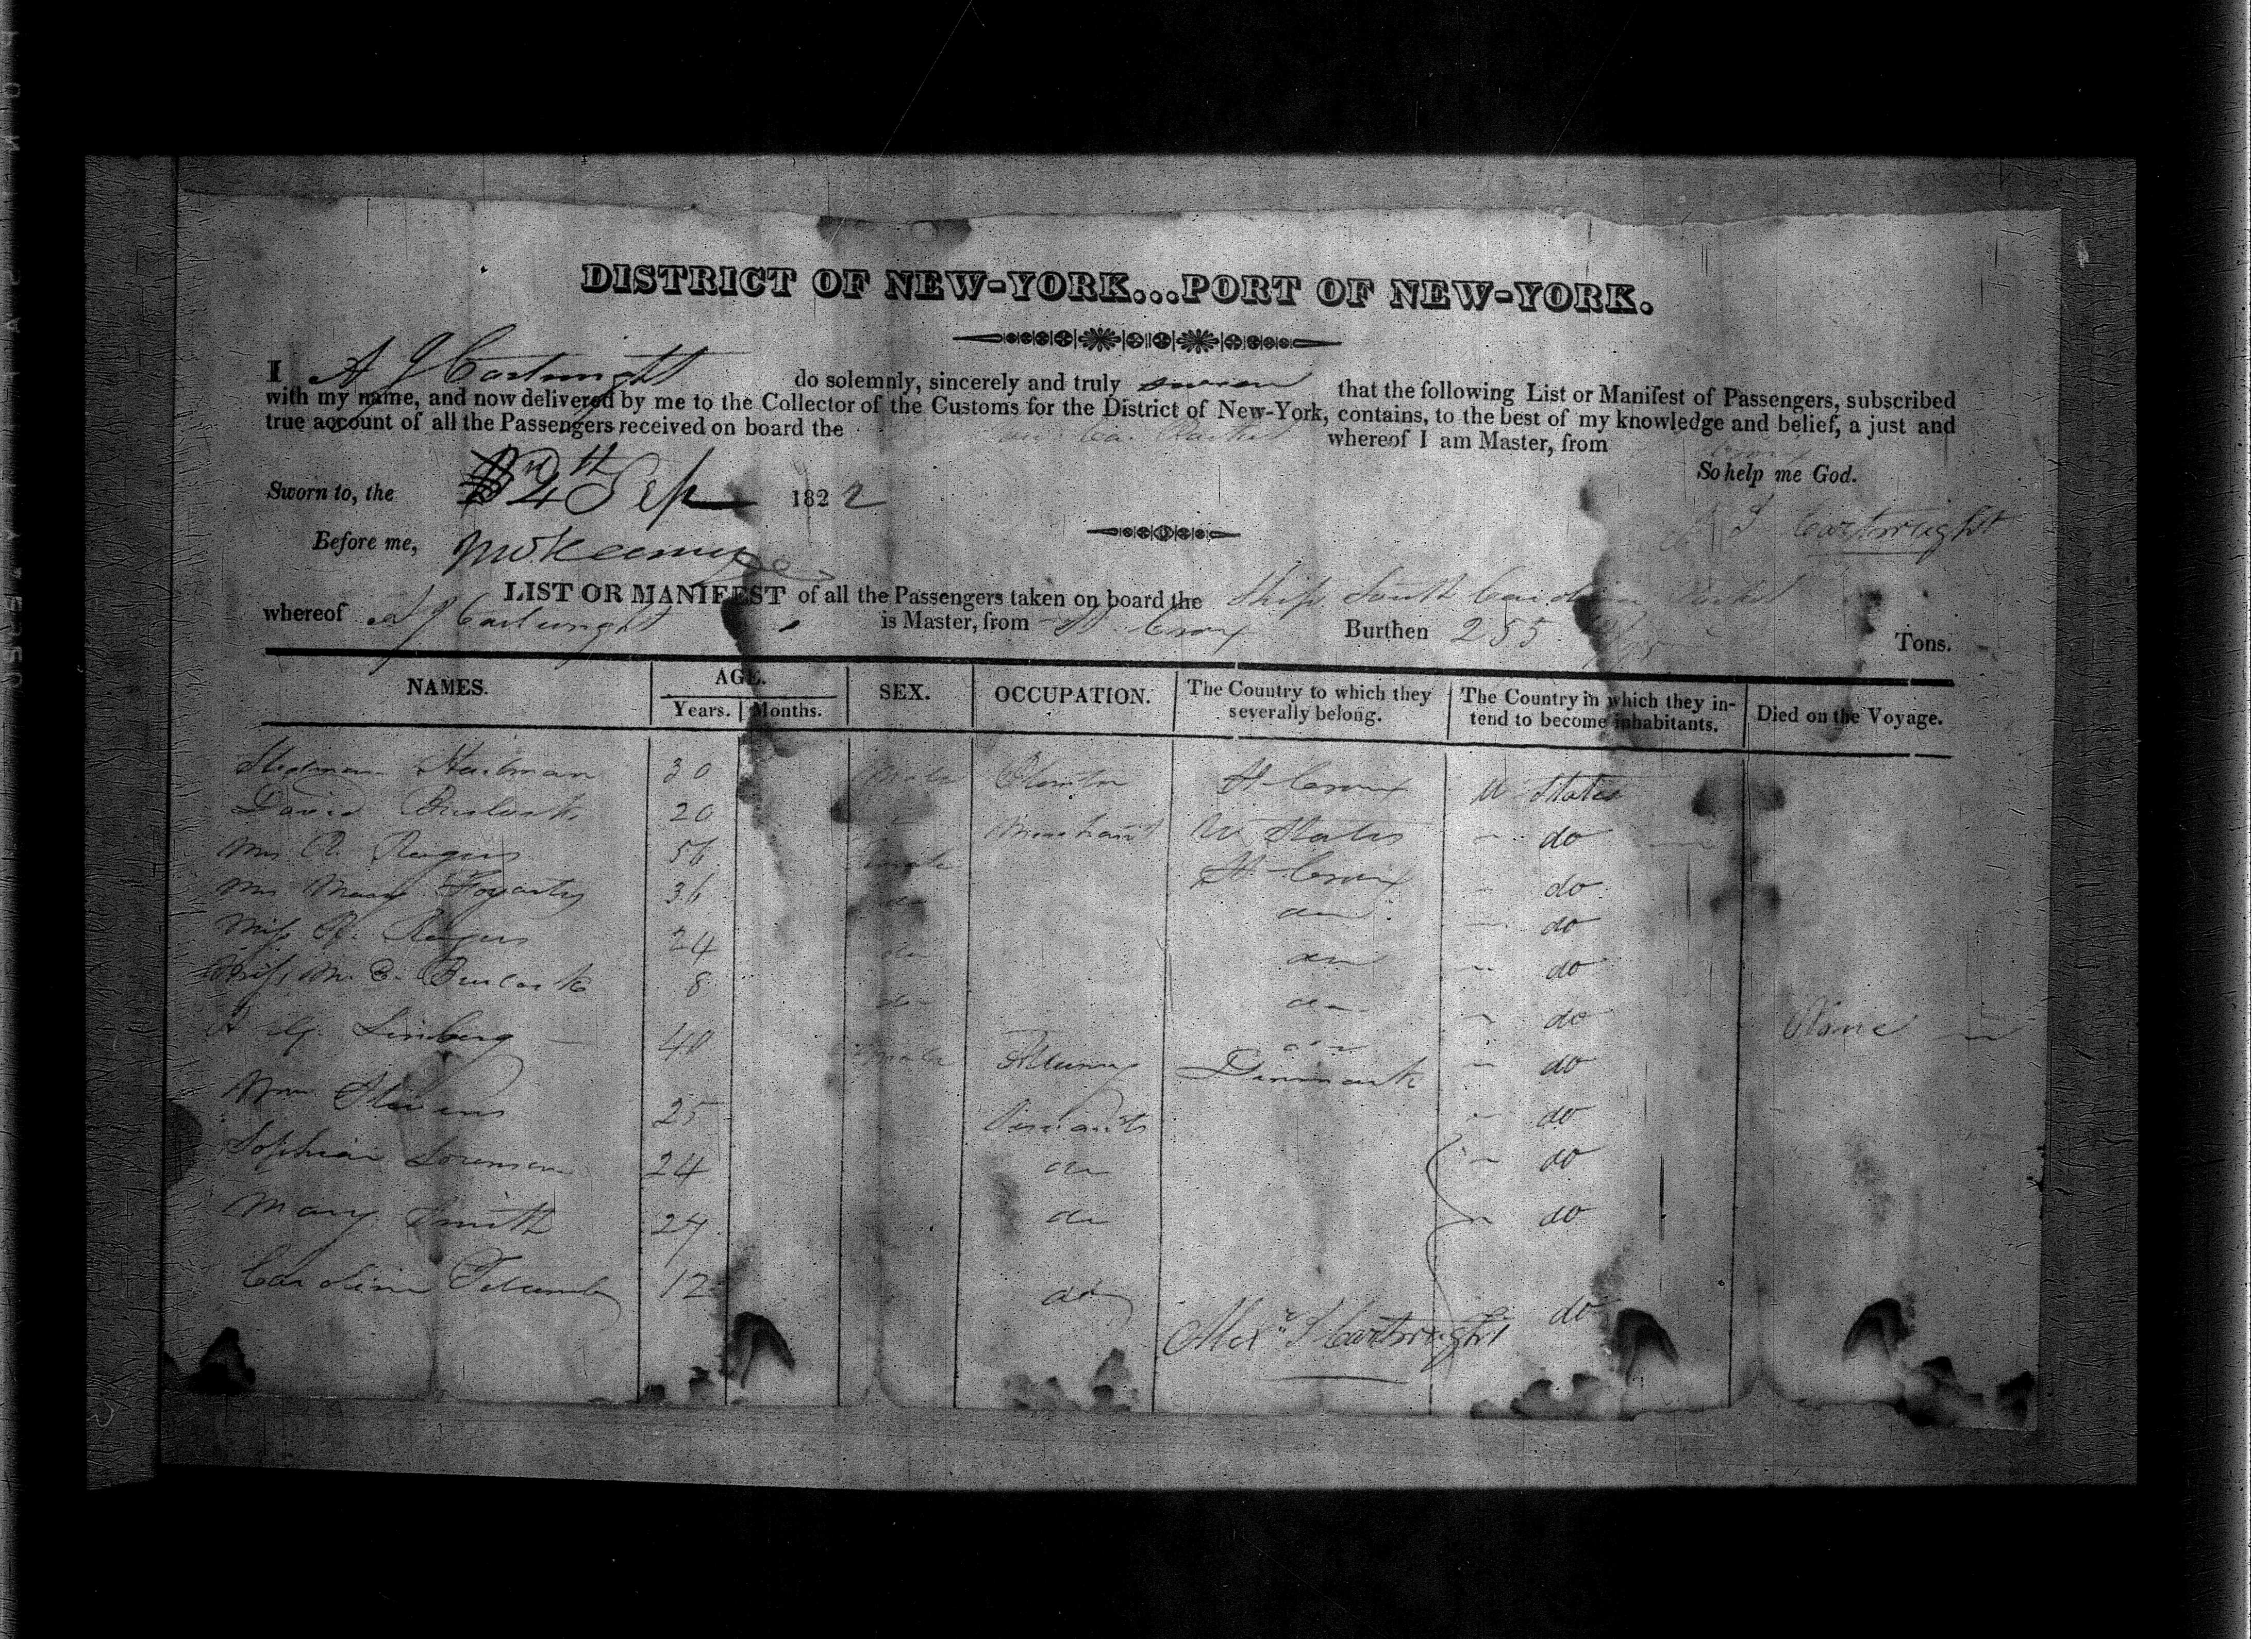 DISTRICT OF NEW-YORK...PORT OF NEW-YORK.
I A J Cartwright do solemnly, sincerely and truly swear that the following List or Manifest of Passengers, subscribed
with my name, and now delivered by me to the Collector of the Customs for the District of New-York, contains, to the best of my knowledge and belief, a just and
true account of all the Passengers received on board the whereof I am Master, from
So help me God.
Sworn to, the 4th Sep 1822
A J Cartwright
Before me,
LIST OR MANIFEST of all the Passengers taken on board the Ship South Carolina Packet
whereof A J Cartwright is Master, from St Croix Burthen 255 Tons.
NAMES. AGE. Years. Months. SEX. OCCUPATION. The Country to which they severally belong. The Country in which they intend to become inhabitants. Died on the Voyage.
30 Male Planter St Croix U States
David 20 Merchant U States do
Mrs R. Rogers 56 Female St Croix do
Mrs Mary Fogarty 36 do do do
Miss Rogers 24 do do do
Miss M. E. 8 do do do
do
None
Limberg 40 Male Denmark do
Wm Stevens 25 Servants do
Sophia 24 do do
Mary Smith 24 do do
Caroline 12 do do
Alexr J Cartwright